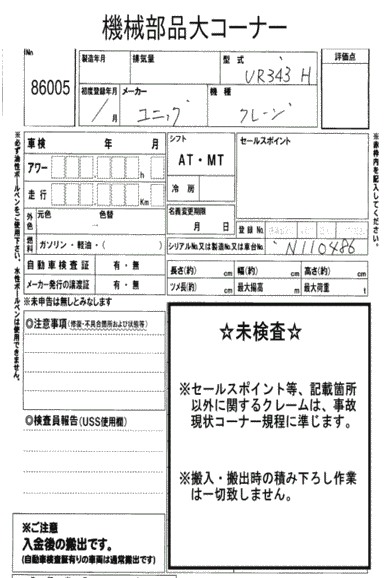 機械部品大コーナー
No
86005
製造年月
排気量
型式
UR343 H
評価点
初度登録年月
/ 月
メーカー
ユニック
機種
クレーン
※必ず油性ボールペンをご使用下さい。水性ボールペンは使用できません。
※赤枠内を記入してください。
車検 年 月
シフト
AT・MT
セールスポイント
アワー h
走行 Km
冷房
外色
元色 色替
→
名義変更期限
月 日
登録No.
燃料
ガソリン・軽油・( )
シリアルNo.又は製造No.又は車台No.
N110486
自動車検査証 有・無
長さ(約) cm
幅(約) cm
高さ(約) cm
メーカー発行の譲渡証 有・無
ツメ長(約) cm
最大揚高 m
最大荷重 t
※未申告は無しとみなします
◎注意事項(修復・不具合箇所および状態等)
☆未検査☆
※セールスポイント等、記載箇所
以外に関するクレームは、事故
現状コーナー規程に準じます。
◎検査員報告(USS使用欄)
※搬入・搬出時の積み下ろし作業
は一切致しません。
※ご注意
入金後の搬出です。
(自動車検査証有りの車両は通常搬出です)